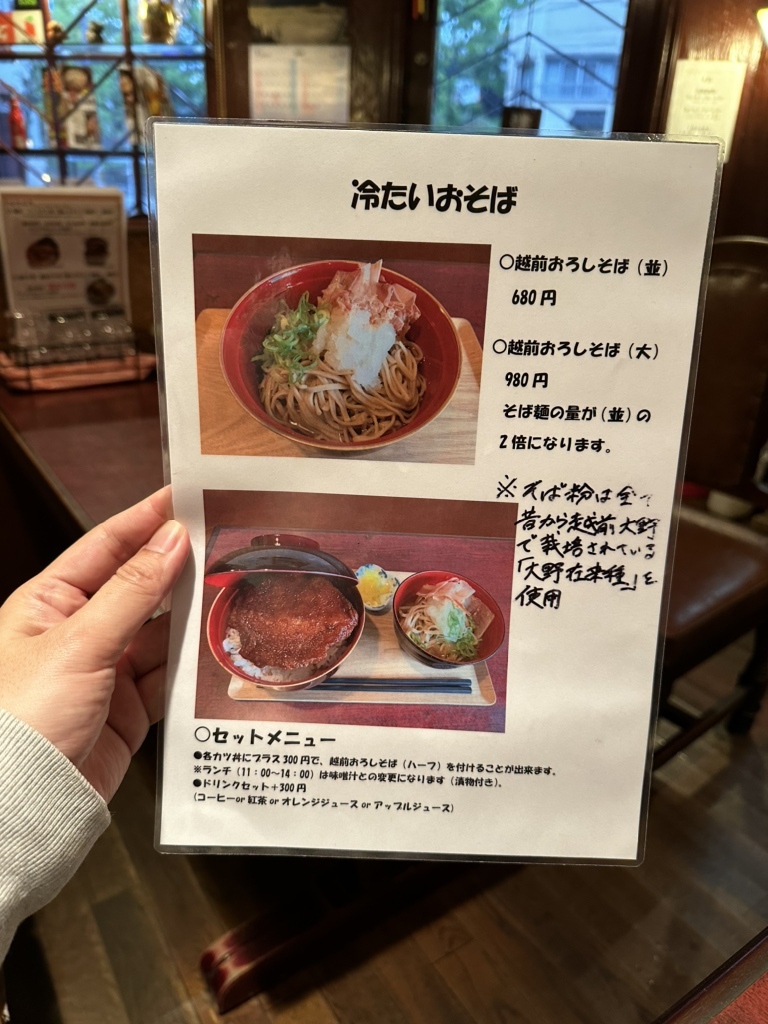 冷たいおそば
○越前おろしそば（並）
680円
○越前おろしそば（大）
980円
そば麺の量が（並）の
2倍になります。
※そば粉は全て
昔から越前大野
で栽培されている
「大野在来種」を
使用
○セットメニュー
●各カツ丼にプラス300円で、越前おろしそば（ハーフ）を付けることが出来ます。
※ランチ（11：00〜14：00）は味噌汁との変更になります（漬物付き）。
●ドリンクセット＋300円
（コーヒーor 紅茶 or オレンジジュース or アップルジュース）